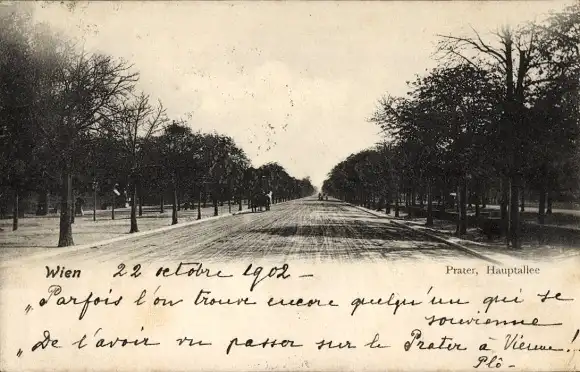 Wien 22 octobre 1902 –
Prater, Hauptallee
„Parfois l'on trouve encore quelqu'un qui se
souvienne
„De l'avoir vu passer sur le Prater à Vienne!
Plô –